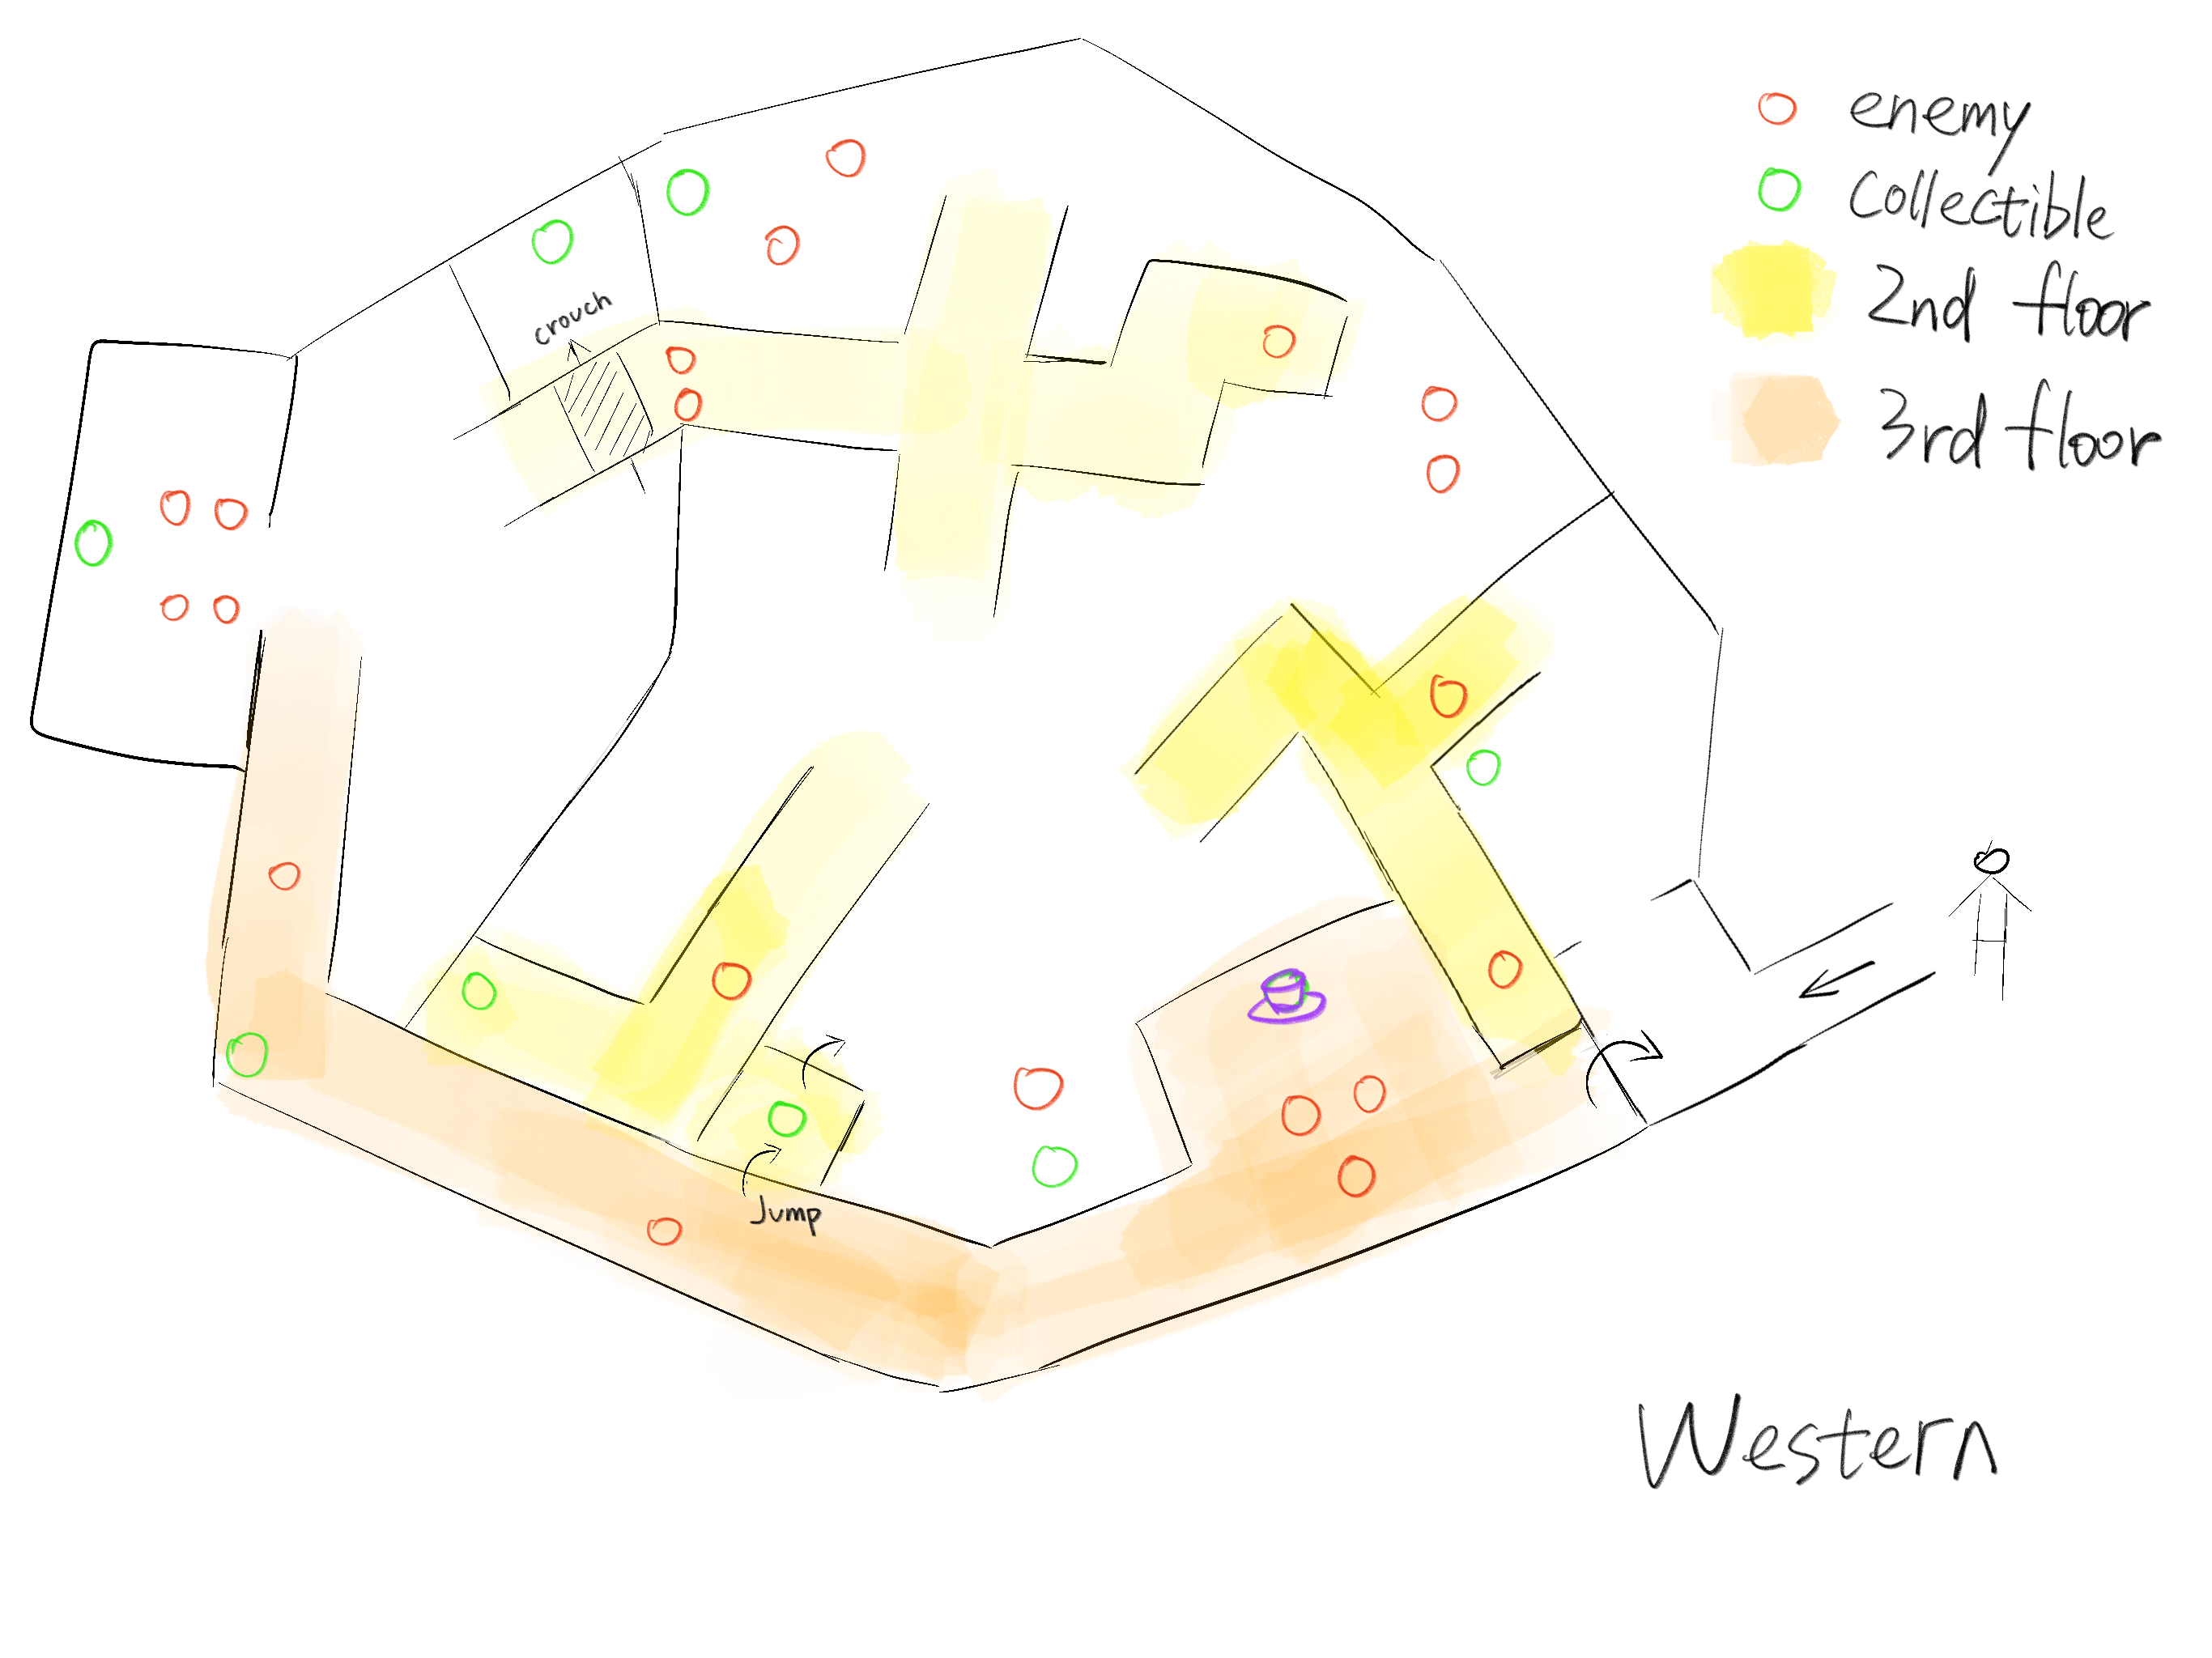 enemy
Collectible
2nd floor
3rd floor
crouch
Jump
Western